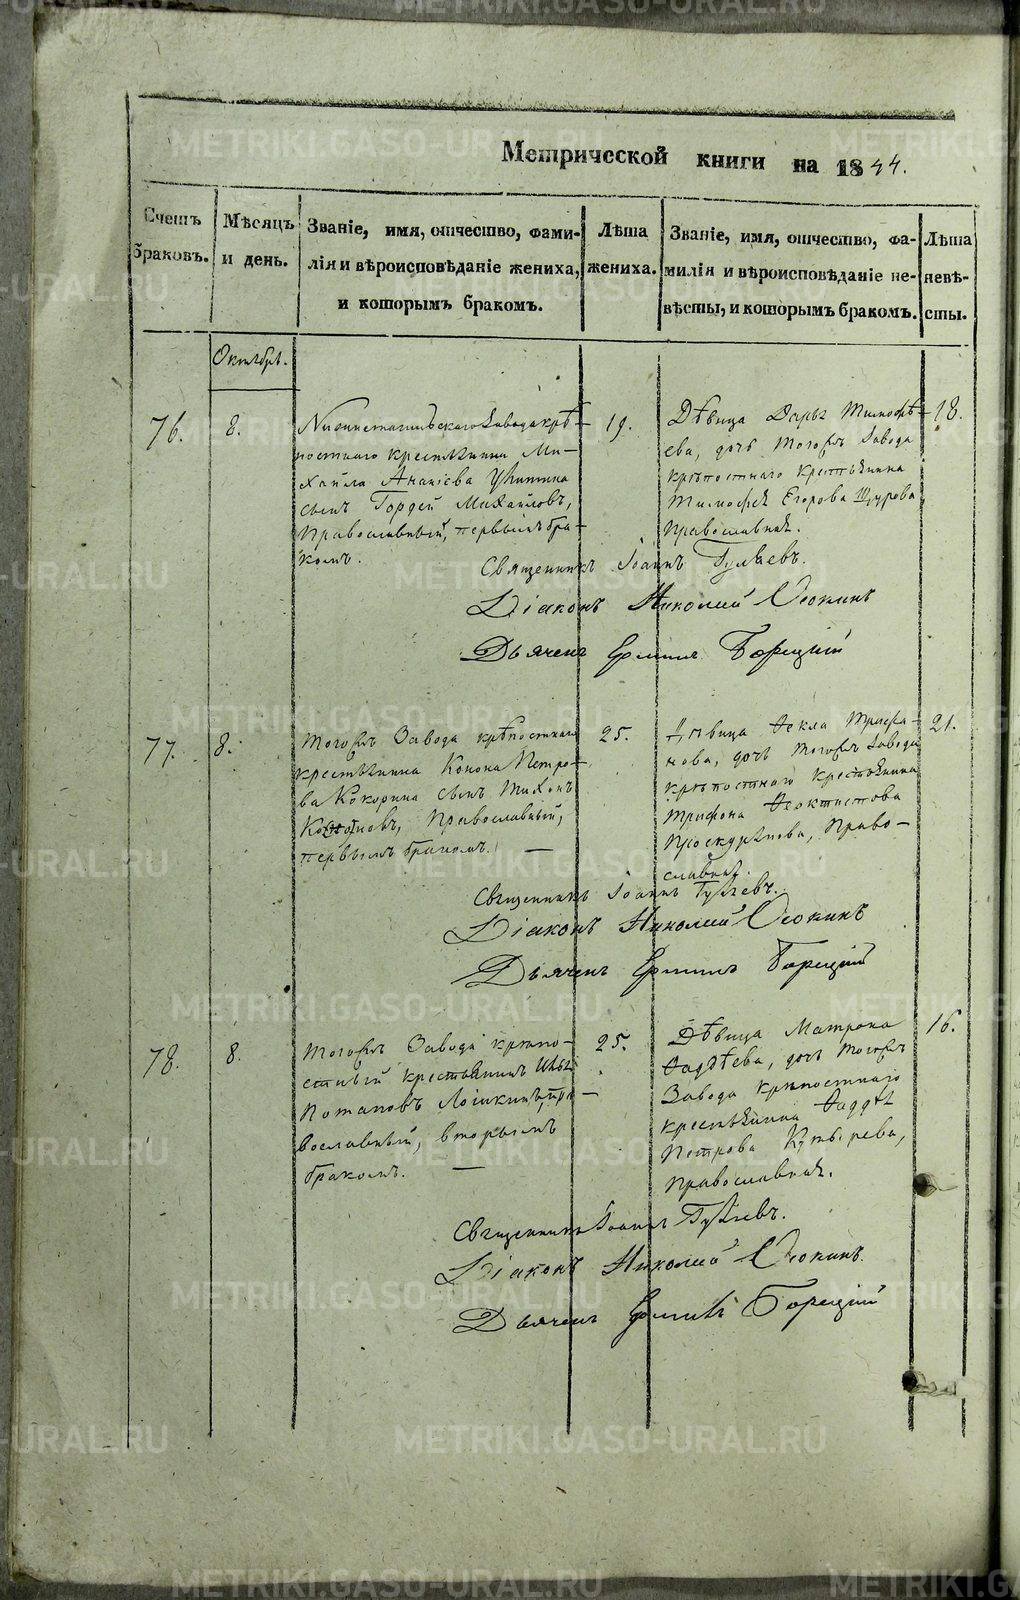 METRIKI.GASO-URAL.RU
Метрической книги на 1844.
Счетъ браковъ.
Мѣсяцъ и день.
Званіе, имя, отчество, фами-
лія и вѣроисповѣданіе жениха,
и которымъ бракомъ.
Лѣта
жениха.
Званіе, имя, отчество, фа-
милія и вѣроисповѣданіе не-
вѣсты, и которымъ бракомъ.
Лѣта
невѣ-
сты.
Октябрь.
76.
8.
Нижнетагильскаго Завода крѣ-
постнаго крестьянина Ми-
хайла Ананіева
сынъ Гордей Михайловъ,
Православный, первымъ бра-
комъ.
19.
Дѣвица Дарья Тимофѣ-
ева, дочь тогожъ Завода
крѣпостнаго крестьянина
Тимофея Егорова Щурова,
Православная.
18.
Священникъ Іоаннъ Гуляевъ.
Діаконъ Николай Осокинъ
Дьячекъ Ермилъ Борецкій
77.
8.
Тогожъ Завода крѣпостнаго
крестьянина Конона Петро-
ва Кокорина сынъ Тихонъ
Кононовъ, Православный,
первымъ бракомъ. —
25.
Дѣвица Ѳекла Трифо-
нова, дочь тогожъ Завода
крѣпостнаго крестьянина
Трифона Ѳеоктистова
Проскурякова, Право-
славная.
21.
Священникъ Іоаннъ Гуляевъ.
Діаконъ Николай Осокинъ
Дьячекъ Ермилъ Борецкій
78.
8.
Тогожъ Завода крѣпо-
стный крестьянинъ Илья
Потаповъ Логикинъ, Пра-
вославный, вторымъ
бракомъ. —
25.
Дѣвица Матрона
Ѳадѣева, дочь тогожъ
Завода крѣпостнаго
крестьянина Ѳаддѣя
Петрова
Православная.
16.
Священникъ Іоаннъ Гуляевъ.
Діаконъ Николай Осокинъ.
Дьячекъ Ермилъ Борецкій